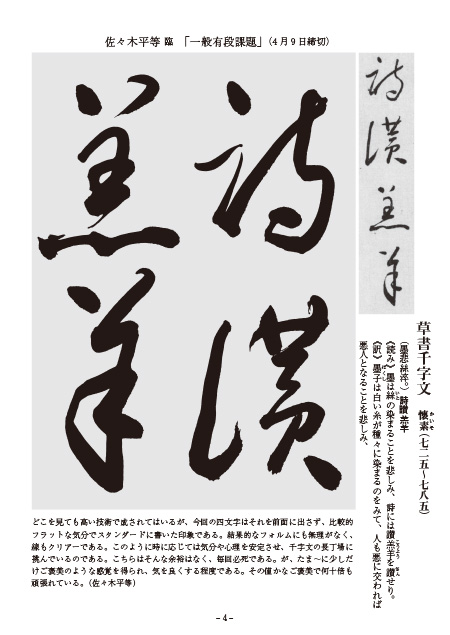 佐々木平等 臨 「一般有段課題」(4月9日締切)
詩讃
羔羊
詩讃羔羊
草書千字文 懐素(七二五〜七八五)
かいそ
(墨悲絲淬。)詩讃羔羊
《読み》墨は絲の染まることを悲しみ、詩には讃羔羊を讃せり。
《訳》墨子は白い糸が種々に染まるのをみて、人も悪に交われば
悪人となることを悲しみ、
どこを見ても高い技術で成されてはいるが、今回の四文字はそれを前面に出さず、比較的
フラットな気分でスタンダードに書いた印象である。結果的なフォルムにも無理がなく、
線もクリアーである。このように時に応じては気分や心理を安定させ、千字文の長丁場に
挑んでいるのである。こちらはそんな余裕はなく、毎回必死である。が、たま〜に少しだ
けご褒美のような感覚を得られ、気を良くする程度である。その僅かなご褒美で何十倍も
頑張れている。(佐々木平等)
- 4 -